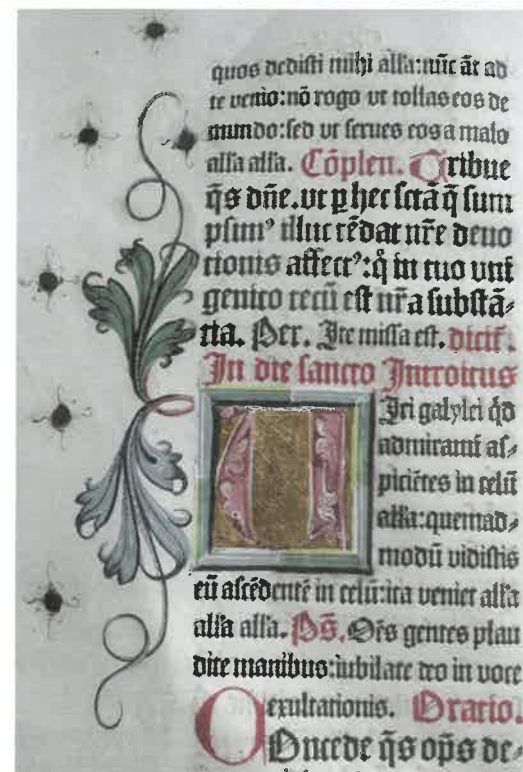 quos dedisti mihi alľa:nūc āt ad
te venio:nō rogo vt tollas eos de
mundo:sed vt serues eos a malo
alľa alľa. Cōplen. Tribue
q̄s dn̄e.vt ꝑ hec sctā q̄ sum
psim⁹ illuc tēdat nr̄e deuo
tionis affect⁹:q̄ in tuo uni
genito tecū est nr̄a substā⸗
tia. Per. Ite missa est. dicit̄.
In die sancto Introitus
Viri galylei q̇d
admiramī as⸗
piciētes in celū
alľa:quemad⸗
modū vidistis
eū ascēdentē in celū:ita veniet alľa
alľa alľa. Ps̄. Oēs gentes plau
dite manibus:iubilate deo in voce
exultationis. Oratio.
COncede q̄s op̄s de⸗